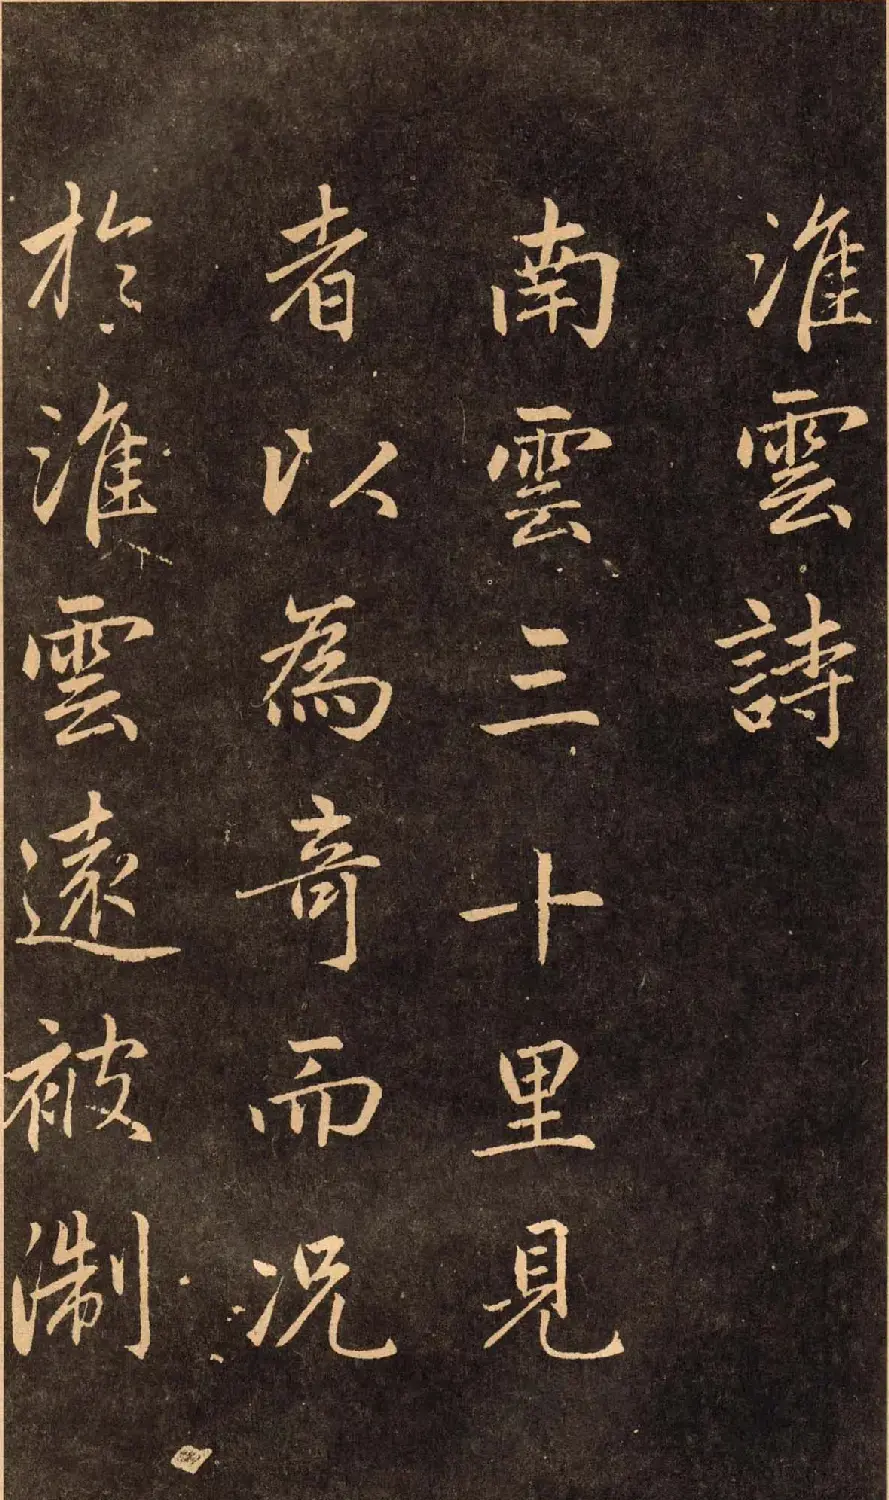 淮雲詩
南雲三十里見
者以為奇而況
於淮雲遠被淛